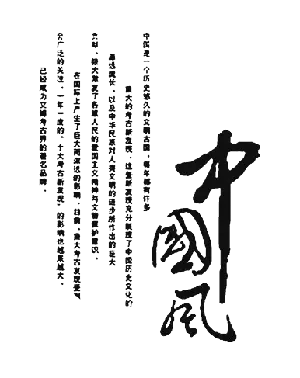 中国是一个历史悠久的文明古国，每年都有许多
重大的考古新发现，这些新发现充分展现了中国历史文化的
源远流长，以及中华民族对人类文明的进步所作出的巨大
贡献，极大激发了各族人民的爱国主义精神与文物保护意识，
在国际上产生了巨大而深远的影响，目前，重大考古发现受到
广泛的关注，一年一度的“十大考古新发现”的影响也越来越大，
已经成为文博考古界的著名品牌。
中國风